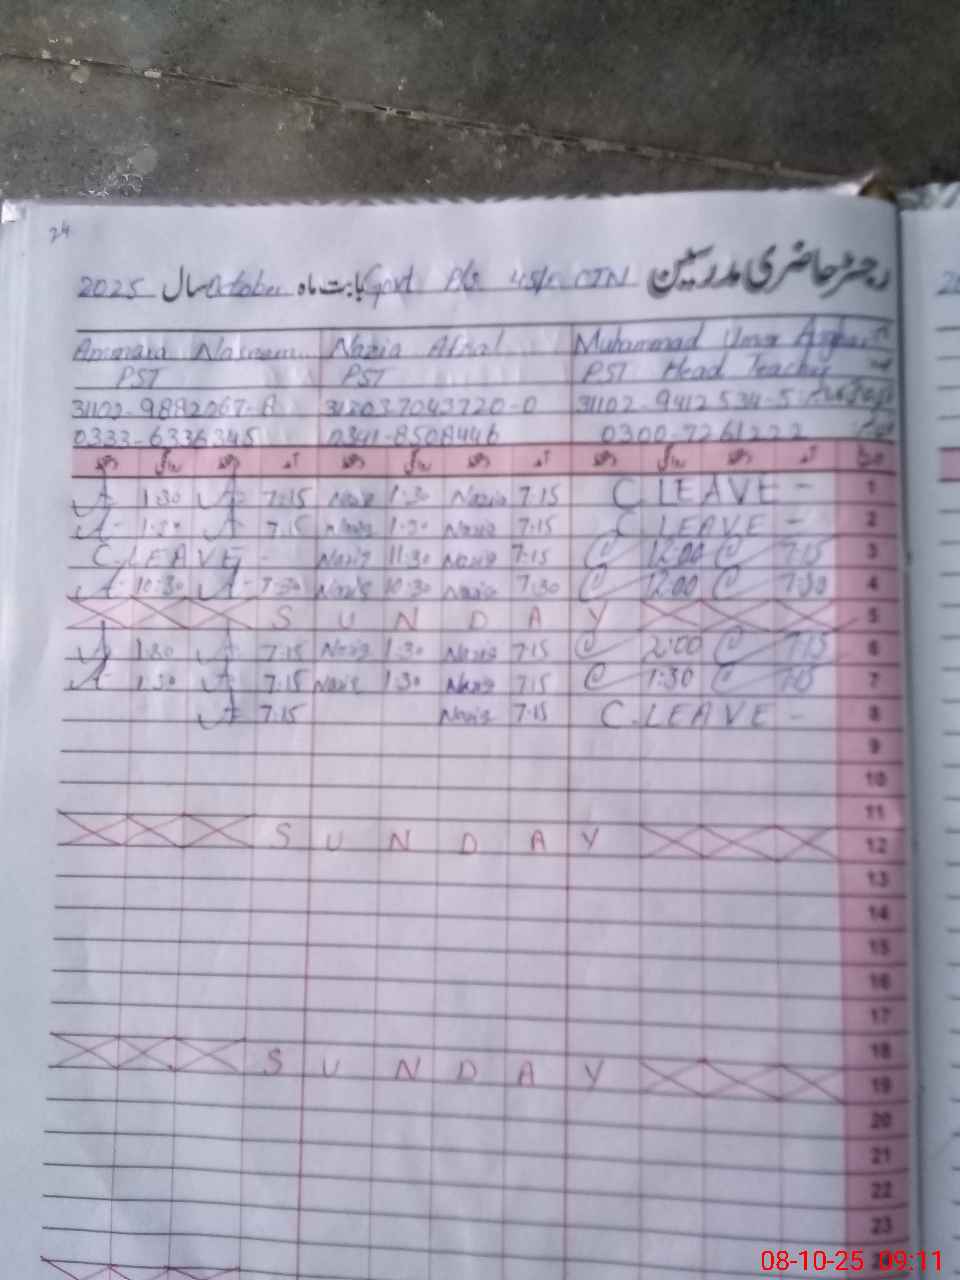 24
رجسٹر حاضری مدرسین Govt P/S 45/ بابت ماہ October سال 2025
Ammara Nasreem Nazia Afzal Muhammad Umar Asghar
PST PST PST Head Teacher
31102-9882067-8 313037043720-0 31102-9412534-5
0333-6336345 0341-8508446 0300-7261222
دستخط روانگی دستخط آمد دستخط روانگی دستخط آمد دستخط روانگی دستخط آمد تاریخ
A 1:30 A 7:15 Nazia 1:30 Nazia 7:15 C LEAVE - 1
A 1:30 A 7:15 Nazia 1:30 Nazia 7:15 C LEAVE - 2
C.LEAVE - Nazia 11:30 Nazia 7:15 12:00 7:15 3
A 10:30 A 7:30 Nazia 10:30 Nazia 7:30 12:00 7:30 4
S U N D A Y 5
A 1:30 A 7:15 Nazia 1:30 Nazia 7:15 2:00 7:15 6
A 1:30 A 7:15 Nazia 1:30 Nazia 7:15 1:30 7:15 7
A 7:15 Nazia 7:15 C.LEAVE - 8
9
10
11
S U N D A Y 12
13
14
15
16
17
18
S U N D A Y 19
20
21
22
23
08-10-25 09:11